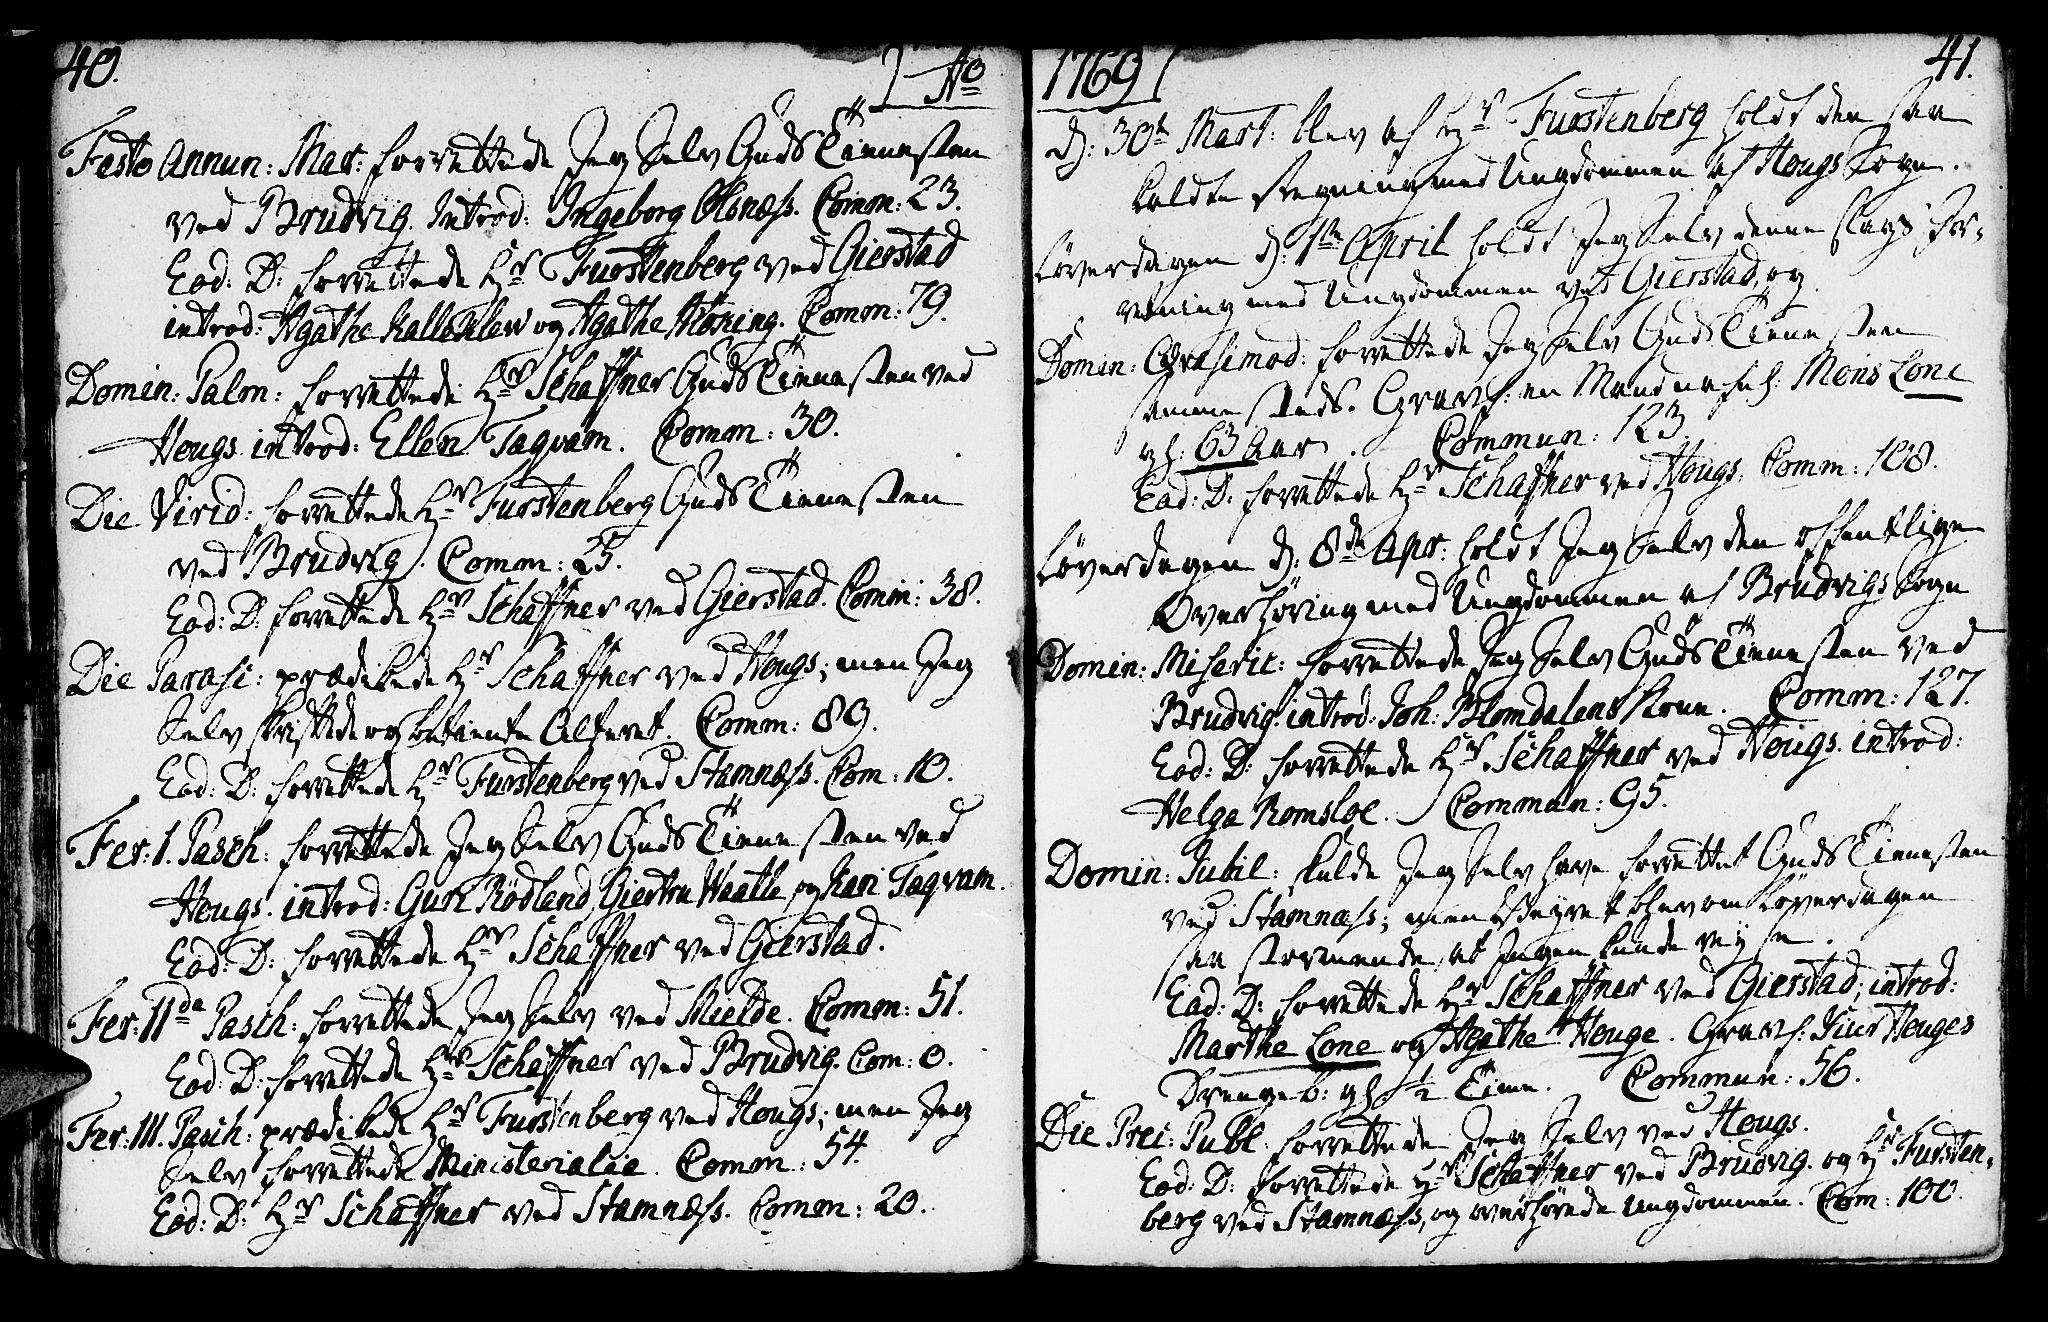 40.
Ao
Festo Annun: Mar: forrettede Jeg Selv Guds Tienesten
ved Brudvig. Introd: Ingeborg Olsnæss. Comm: 23.
Eod: D: forrettede Hr Furstenberg ved Gierstad
introd: Agathe Kalleklew og Agathe Høsing. Comm: 79.
Domin: Palm: forrettede Hr Schaffner Guds Tienesten ved
Hougs. introd: Ellen Taqvam. Comm: 30.
Die Virid: forrettede Hr Furstenberg Guds Tienesten
ved Brudvig. Comm: 25.
Eod: D: forrettede Hr Schaffner ved Gierstad. Comm: 38.
Die Parasc: prædikede Hr Schaffner ved Hougs; men Jeg
Selv skriftede og betiente Alteret. Comm: 89.
Eod: D: forrettede Hr Furstenberg ved Stamnæss. Com: 10.
Fer: 1. Pasch: forrettede Jeg Selv Guds Tienesten ved
Hougs. introd: Guri Rødland, Giertru Waatle og Kari Taqvam.
Eod: D: forrettede Hr Schaffner ved Gierstad.
Fer: 11da Pasch: forrettede Jeg Selv ved Mielde. Comm: 51.
Eod: D: forrettede Hr Schaffner ved Brudvig. Com: 0.
Fer: 111. Pasch: prædikede Hr Furstenberg ved Hougs; men Jeg
Selv forrettede Ministerialia. Comm: 54.
Eod: D: Hr Schaffner ved Stamnæss. Comm: 20.
1769
41.
d: 30te Mart: blev af Hr Furstenberg holdt den saa
kaldte med Ungdommen af Hougs Sogn.
Løverdagen d: 1te April holdt Jeg Selv denne slags
med Ungdommen ved Gierstad, og
Domin: Qvasimod: forrettede Jeg Selv Guds Tienesten
samme steds. Gravf: en Mand Mons Lone
gl: 63 Aar. Commun: 123
Eod: D: forrettede Hr Schaffner ved Hougs. Comm: 108.
Løverdagen d: 8de Apr: holdt Jeg Selv den offentlige
Overhøring med Ungdommen af Brudvigs Sogn
Domin: Miseric: forrettede Jeg Selv Guds Tienesten ved
Brudvig. introd: Joh: Blomdalens Kone. Comm: 127.
Eod: D: forrettede Hr Schaffner ved Hougs. introd:
Helga Romsloe. Commun: 95.
Domin: Jubil: skulde Jeg Selv have forrettet Guds Tienesten
ved Stamnæss; men Veyret blev om Løverdagen
saa stormende, at Ingen kunde
Eod: D: forrettede Hr Schaffner ved Gierstad; introd:
Marthe Lone og Agathe Houge. Gravf: Siur Houges
Drengeb: gl: 1/2 Time. Commun: 56.
Die Prec: Publ: forrettede Jeg Selv ved Hougs.
Eod: D: forrettede Hr Schaffner ved Brudvig. og Hr Fursten-
berg ved Stamnæss, og overhørede Ungdommen. Com: 100.